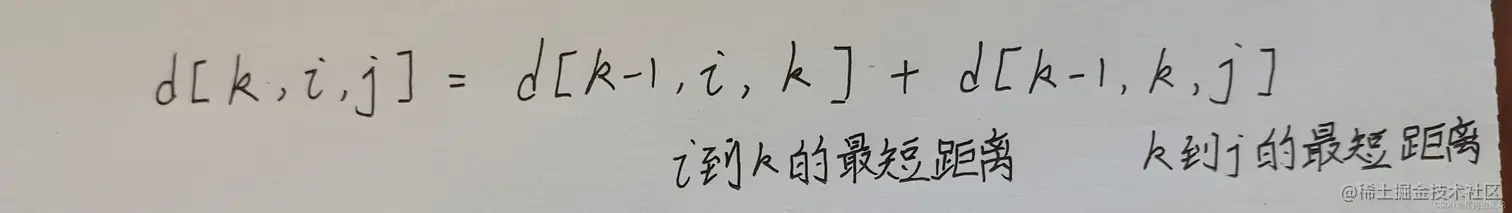 d[k,i,j] = d[k-1,i,k] + d[k-1,k,j]
i到k的最短距离 k到j的最短距离
@稀土掘金技术社区